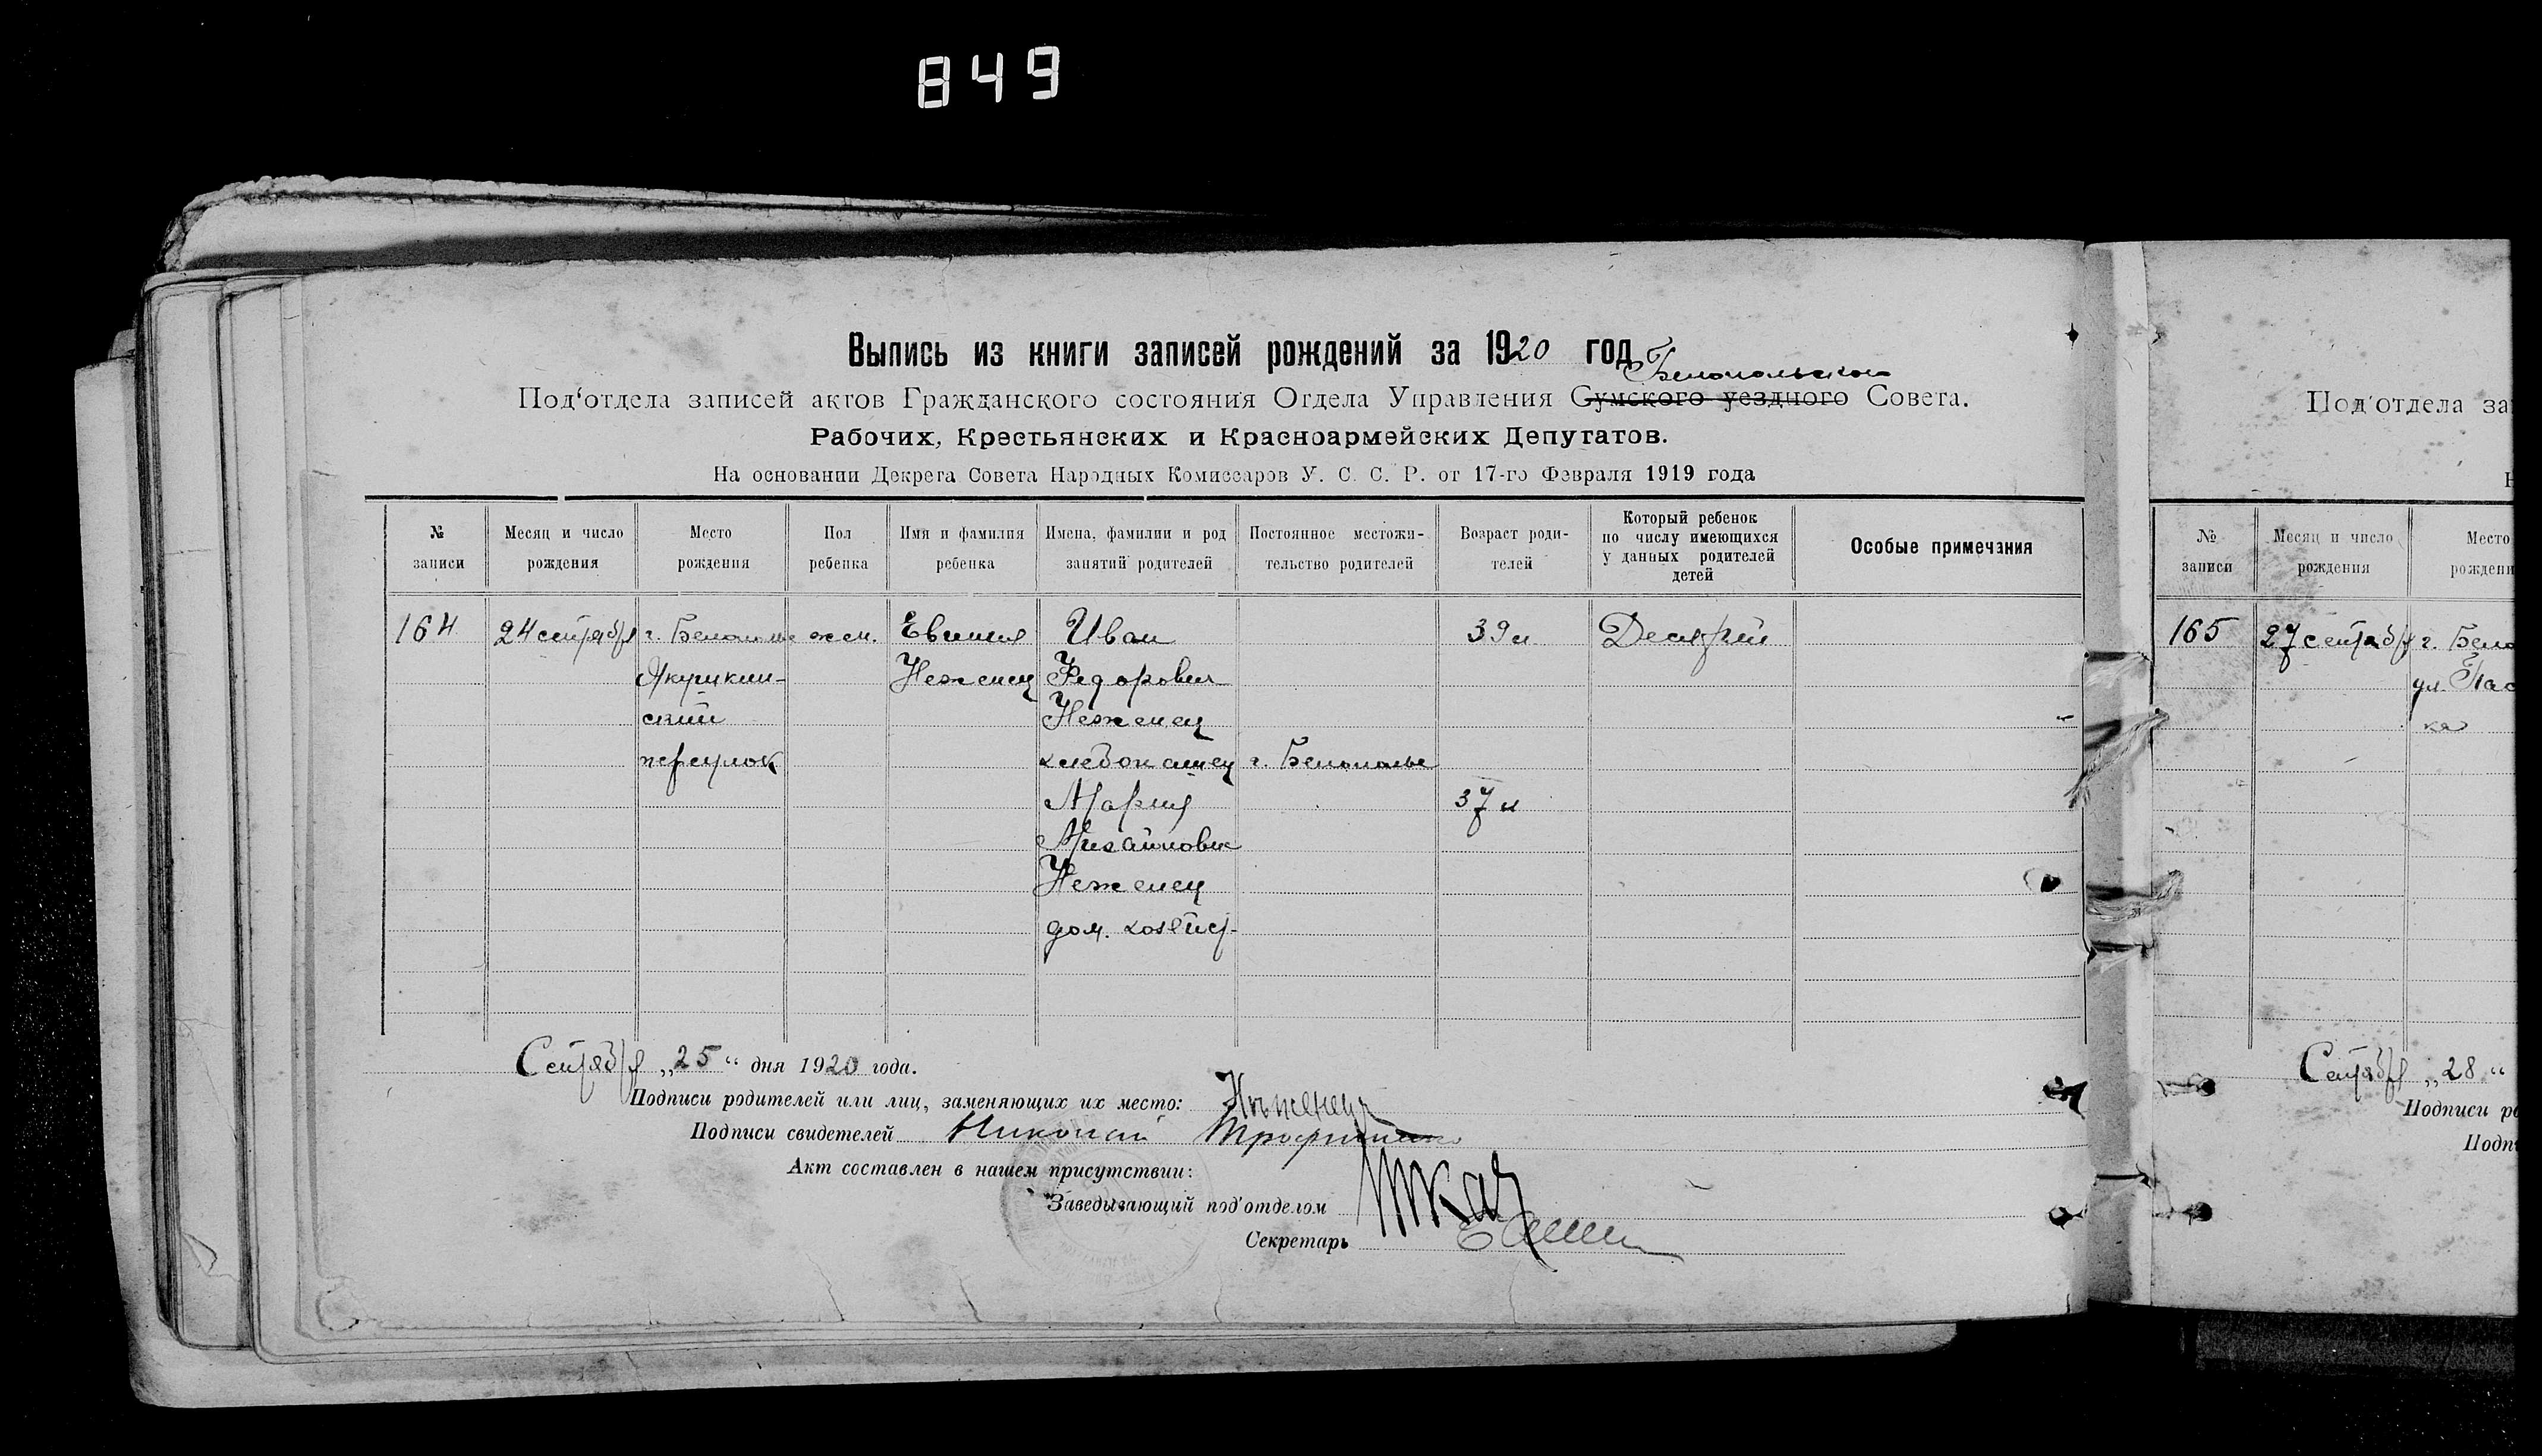 849
Выпись из книги записей рождений за 1920 год
Белопольского
Под'отдела записей актов Гражданского состояния Отдела Управления Сумского уездного Совета.
Рабочих, Крестьянских и Красноармейских Депутатов.
На основании Декрета Совета Народных Комиссаров У. С. С. Р. от 17-го Февраля 1919 года
№ записи
Месяц и число рождения
Место рождения
Пол ребенка
Имя и фамилия ребенка
Имена, фамилии и род занятий родителей
Постоянное местожительство родителей
Возраст родителей
Который ребенок по числу имеющихся у данных родителей детей
Особые примечания
164 24 сентября г. Белополье жен. Иван 39 л Десятый
Неженец Федорович
ский Неженец
переулок хлебопашец г. Белополье
Мария 37 л
Михайловна
Неженец
дом. хозяйст.
Сентября „25“ дня 1920 года.
Подписи родителей или лиц, заменяющих их место: Нъженець
Подписи свидетелей Николай
Акт составлен в нашем присутствии:
Заведывающий под'отделом Ткач
Секретарь
Под'отдела за
Н
№ записи
Месяц и число рождения
Место рождени
165 27 сентября г. Бело
ул. Пас
ка
Сентября „28“
Подписи ро
Подп